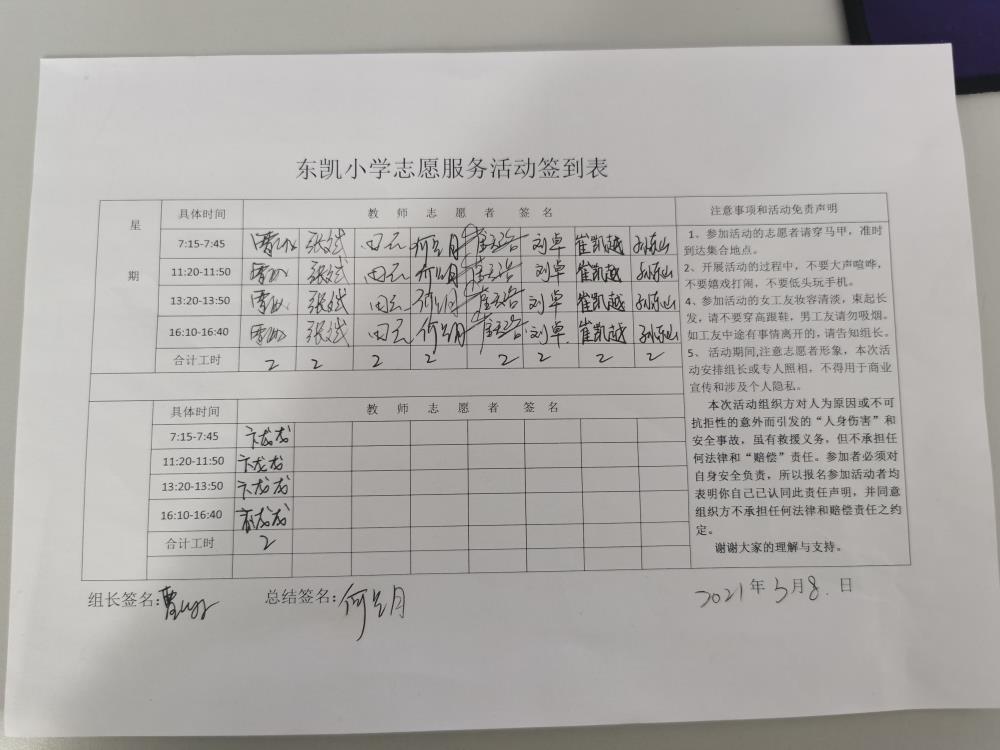 东凯小学志愿服务活动签到表
星期
具体时间 教师志愿者签名 注意事项和活动免责声明
7:15-7:45 张斌 田元 何兰月 刘卓 崔凯越 孙东山
11:20-11:50 张斌 田元 何兰月 刘卓 崔凯越 孙东山
13:20-13:50 张斌 田元 何兰月 刘卓 崔凯越 孙东山
16:10-16:40 张斌 田元 何兰月 刘卓 崔凯越 孙东山
合计工时 2 2 2 2 2 2 2 2
具体时间 教师志愿者签名
7:15-7:45 卞龙龙
11:20-11:50 卞龙龙
13:20-13:50 卞龙龙
16:10-16:40 龙龙
合计工时 2
1、参加活动的志愿者请穿马甲，准时
到达集合地点。
2、开展活动的过程中，不要大声喧哗，
不要嬉戏打闹，不要低头玩手机。
4、参加活动的女工友妆容清淡，束起长
发，请不要穿高跟鞋，男工友请勿吸烟。
如工友中途有事情离开的，请告知组长。
5、 活动期间,注意志愿者形象，本次活
动安排组长或专人照相，不得用于商业
宣传和涉及个人隐私。
本次活动组织方对人为原因或不可
抗拒性的意外而引发的“人身伤害”和
安全事故，虽有救援义务，但不承担任
何法律和“赔偿”责任。参加者必须对
自身安全负责，所以报名参加活动者均
表明你自己已认同此责任声明，并同意
组织方不承担任何法律和赔偿责任之约
定。
谢谢大家的理解与支持。
组长签名： 总结签名：何兰月 2021年3月8.日